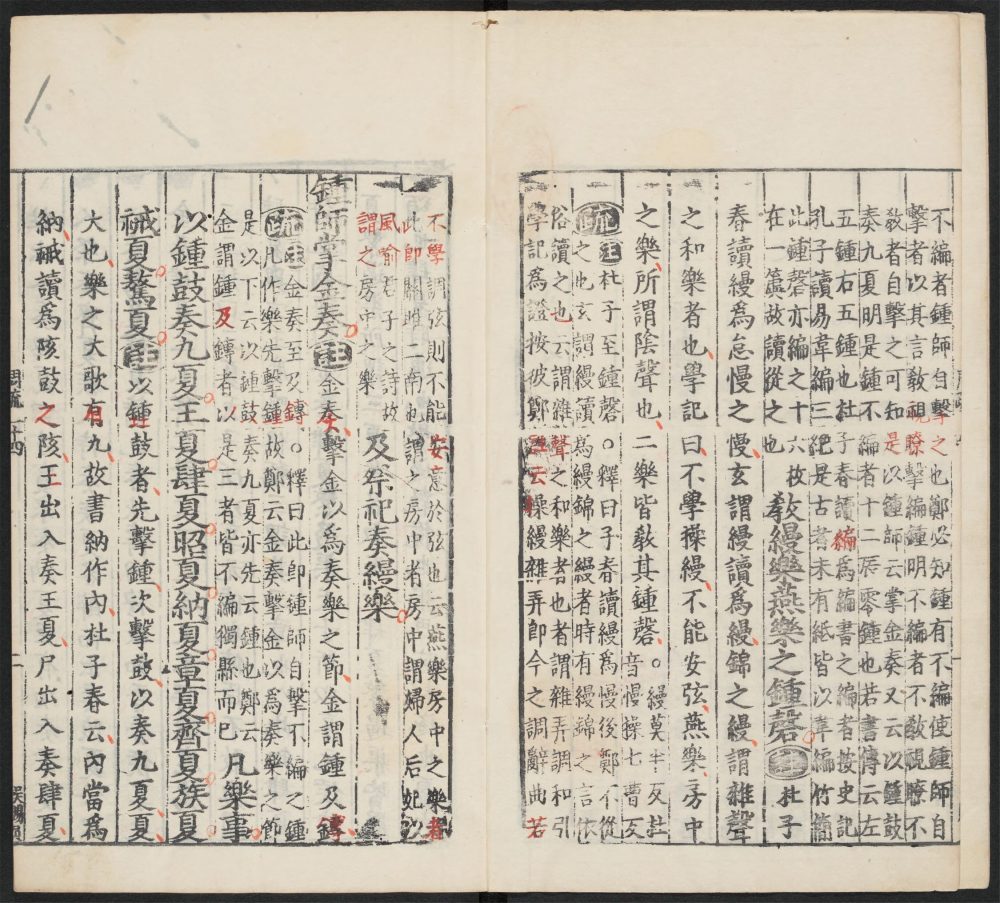 不編者鍾師自擊之也鄭必知鍾有不編使鍾師自
擊者以其言教視瞭擊編鍾明不編者不教視瞭不
教者自擊之可知是以鍾師云掌金奏又云以鍾鼓
奏九夏明是鍾不編者十二辰零鍾也若書傳云左
五鍾右五鍾也杜子春讀編爲編書之編者按史記
孔子讀易韋編三絕是古者未有紙皆以韋編竹簡
此鍾磬亦編之十六枚
在一簴故讀從之也
教縵樂燕樂之鍾磬注杜子
春讀縵爲怠慢之慢玄謂縵讀爲縵錦之縵謂雜聲
之和樂者也學記曰不學操縵不能安弦燕樂房中
之樂所謂陰聲也二樂皆教其鍾磬
○縵莫半反杜
音慢操七曹反
疏注杜子至鍾磬○釋曰子春讀縵爲慢後鄭不從
之也玄謂縵讀爲縵錦之縵者時有縵錦之言依
俗讀之也云謂雜聲之和樂者也者謂雜弄調和引
學記爲證按彼鄭注云操縵雜弄即今之調辭曲若
不學調弦則不能安意於弦也云燕樂房中之樂者
此即關雎二南也謂之房中者房中謂婦人后妃以
風喻君子之詩故
謂之房中之樂
及祭祀奏縵樂
鍾師掌金奏注金奏擊金以爲奏樂之節金謂鍾及鎛
疏注金奏至及鎛○釋曰此即鍾師自擊不編之鍾
凡作樂先擊鍾故鄭云金奏擊金以爲奏樂之節
是以下云以鍾鼓奏九夏亦先云鍾也鄭云
金謂鍾及鎛者以是三者皆不編獨縣而已
凡樂事
以鍾鼓奏九夏王夏肆夏昭夏納夏章夏齊夏族夏
祴夏驁夏注以鍾鼓者先擊鍾次擊鼓以奏九夏夏
大也樂之大歌有九故書納作內杜子春云內當爲
納祴讀爲陔鼓之陔王出入奏王夏尸出入奏肆夏